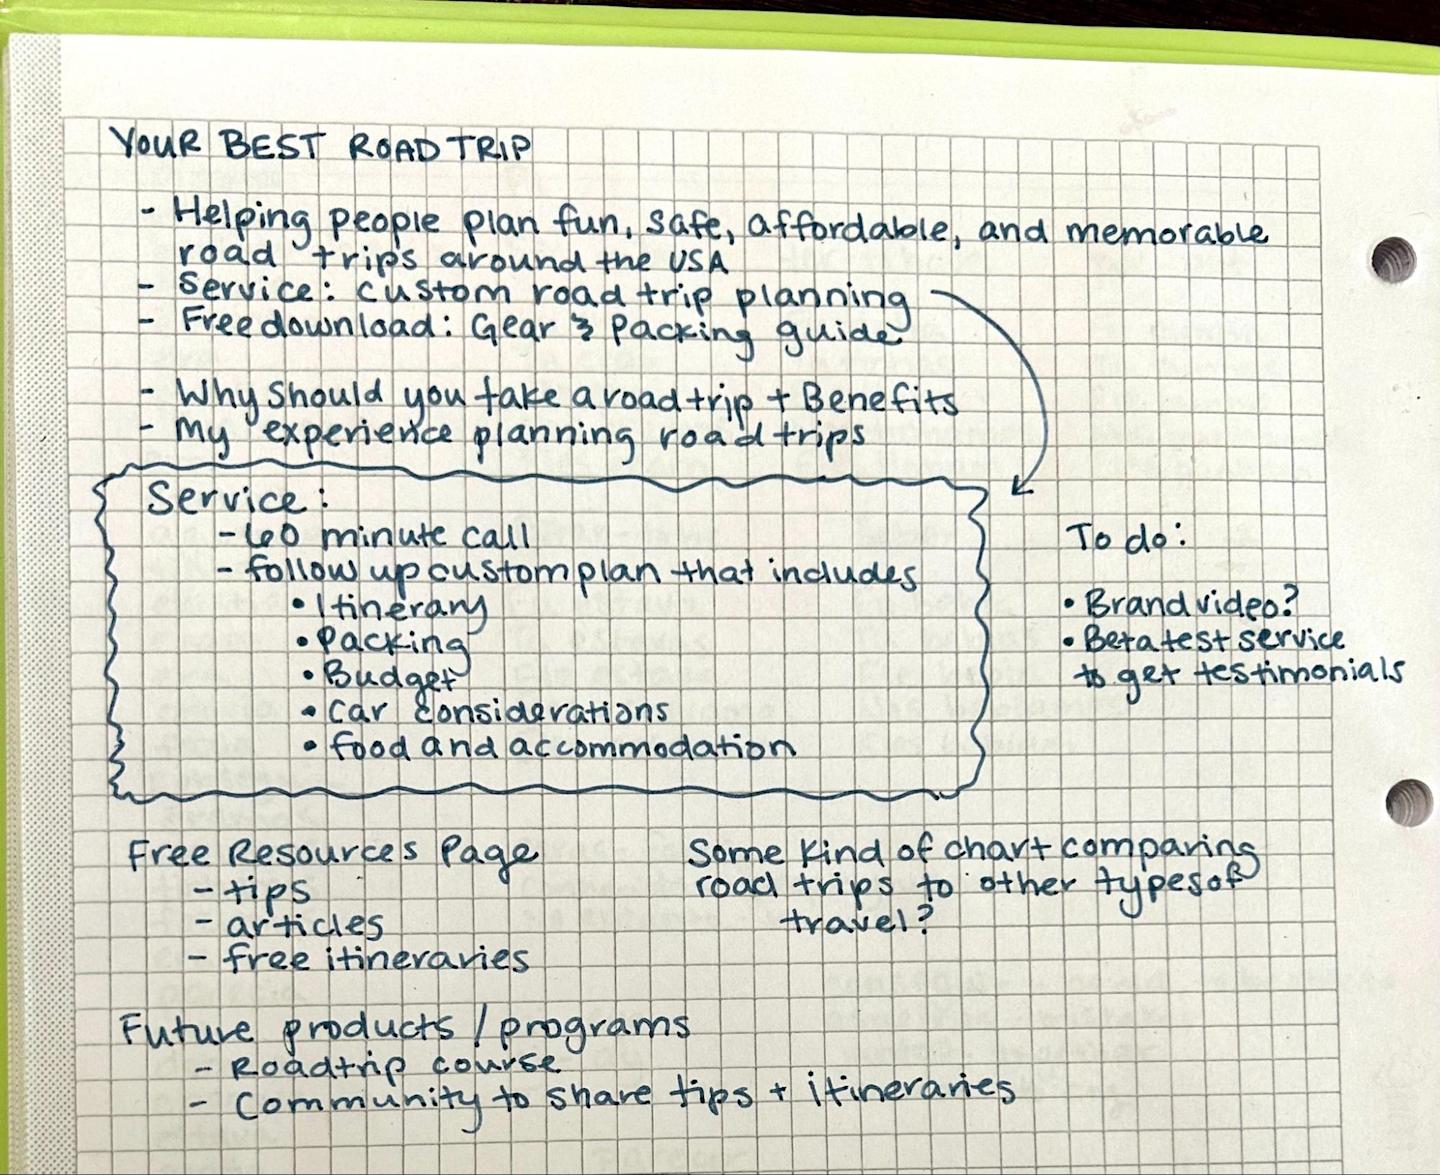 YOUR BEST ROAD TRIP
- Helping people plan fun, safe, affordable, and memorable
road trips around the USA
- Service: custom road trip planning
- Free download: Gear & packing guide
- Why should you take a road trip + Benefits
- My experience planning road trips
Service:
- 60 minute call
- follow up custom plan that includes
• Itinerary
• Packing
• Budget
• Car considerations
• food and accommodation
To do:
• Brand video?
• Beta test service
to get testimonials
Free Resources Page
- tips
- articles
- free itineraries
Some kind of chart comparing
road trips to other types of
travel?
Future products / programs
- Roadtrip course
- Community to share tips + itineraries